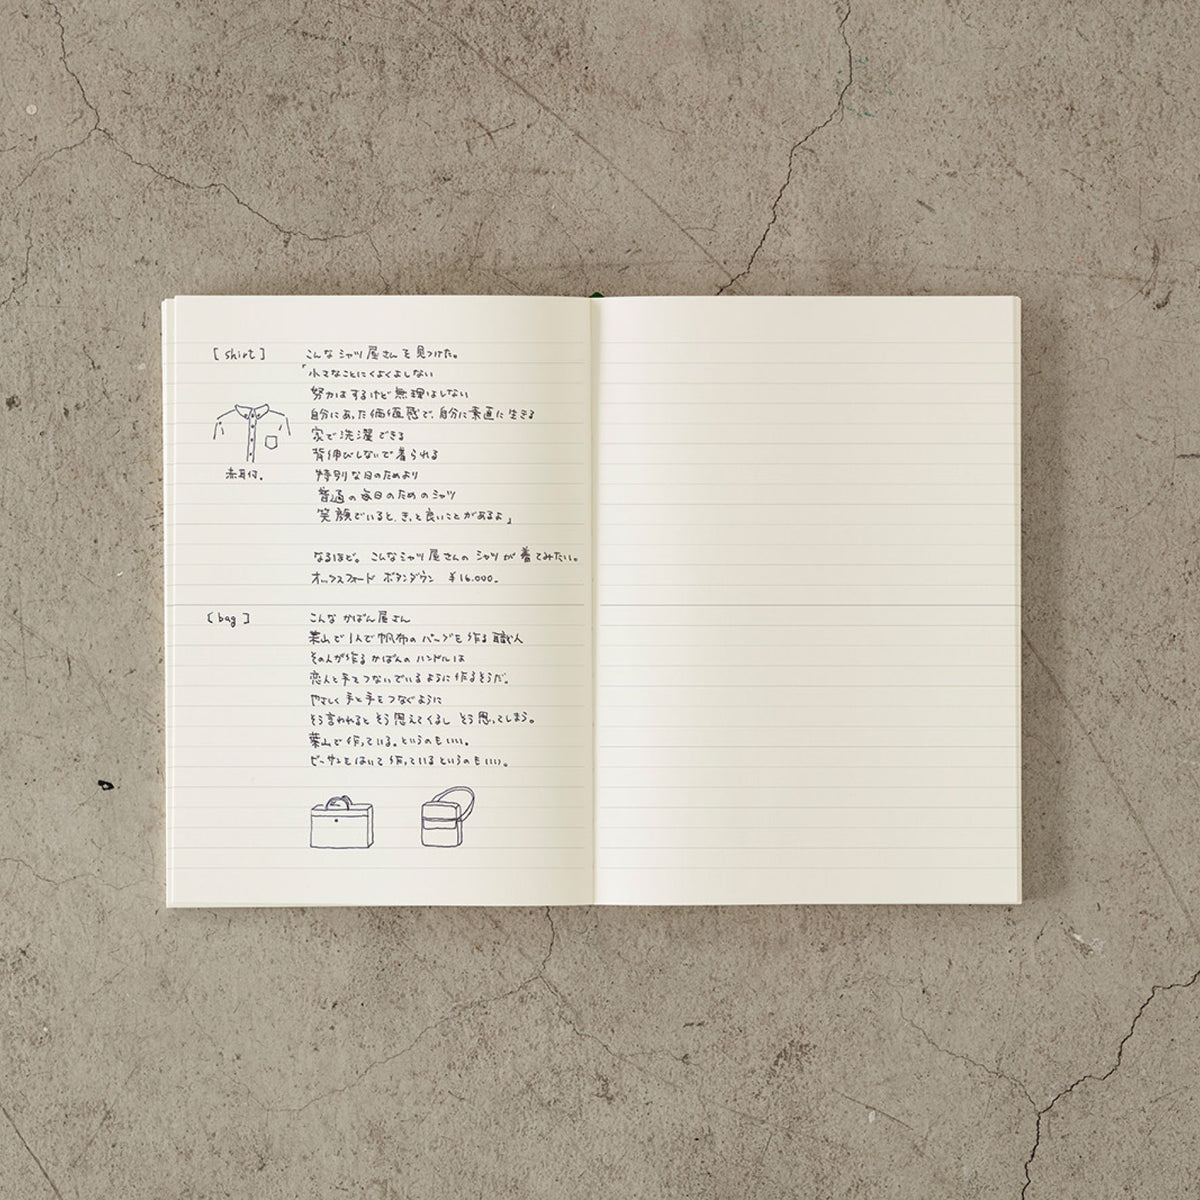 [ shirt ] こんなシャツ屋さんを見つけた。
「小さなことにくよくよしない
努力はするけど無理はしない
自分にあった価値感で、自分に素直に生きる
家で洗濯できる
背伸びしないで着られる
赤耳付。 特別な日のためより
普通の毎日のためのシャツ
笑顔でいると、きっと良いことがあるよ」
なるほど。こんなシャツ屋さんのシャツが着てみたい。
オックスフォード ボタンダウン ¥16.000.
[ bag ] こんなかばん屋さん
葉山で1人で帆布のバッグを作る職人
その人が作るかばんのハンドルは
恋人と手をつないでいるように作るそうだ。
やさしく手と手をつなぐように
そう言われるとそう思えてくるし そう思ってしまう。
葉山で作っている。というのもいい。
ビーサンをはいて作っているというのもいい。